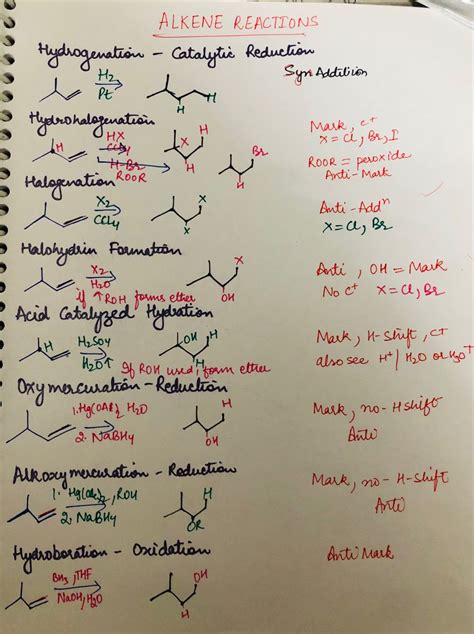 ALKENE REACTIONS
Hydrogenation - Catalytic Reduction
Syn Addition
H2
Pt
H
H
Hydrohalogenation
Mark, c+
X = Cl, Br, I
H
HX
CCl4
H-Br
ROOR
X
H
H
Br
H
ROOR = peroxide
Anti-Mark
Halogenation
X2
CCl4
X
X
Anti-Addn
X = Cl, Br
Halohydrin Formation
X2
H2O
if ↑ROH forms ether
X
OH
Anti, OH = Mark
No C+ X = Cl, Br
Acid Catalyzed Hydration
H
H2SO4
H2O↑
If ROH used, form ether
OH
H
H
Mark, H-shift, c+
also see H+/H2O or H3O+
Oxymercuration - Reduction
1. Hg(OAc)2 H2O
2. NaBH4
H
OH
Mark, no-H shift
Anti
Alkoxymercuration - Reduction
2. NaBH4
H
OR
Mark, no-H-shift
Anti
Hydroboration - Oxidation
Anti Mark
BH3, THF
NaOH, H2O
OH
H